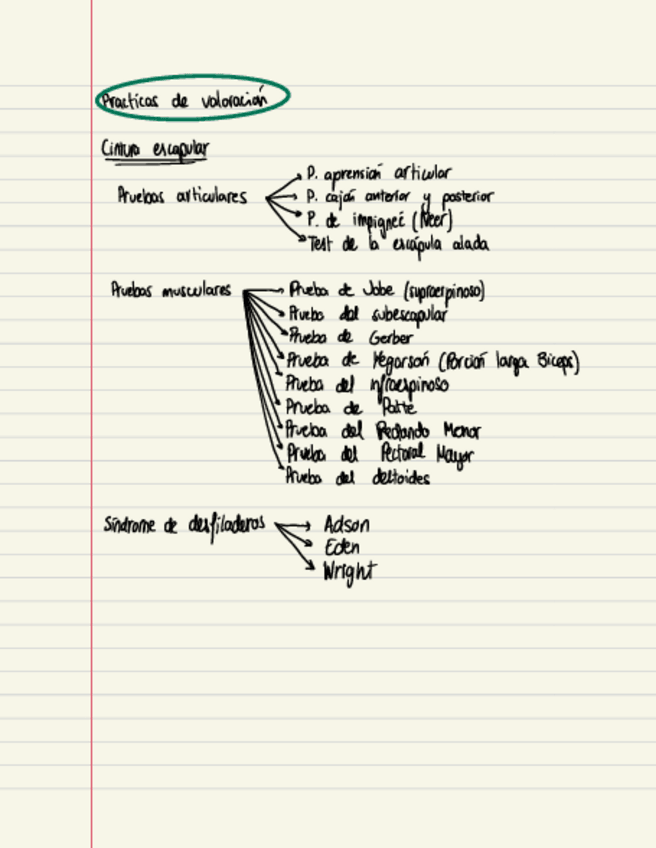 Practicas de valoración
Cintura escapular
Pruebas articulares
P. aprensión articular
P. cajón anterior y posterior
P. de impigneé (Neer)
Test de la escápula alada
Pruebas musculares
Prueba de Jobe (supraespinoso)
Prueba del subescapular
Prueba de Gerber
Prueba de Yegarsón (Porción larga Biceps)
Prueba del infraespinoso
Prueba de Patte
Prueba del Redondo Menor
Prueba del Pectoral Mayor
Prueba del deltoides
Síndrome de desfiladeros
Adson
Eden
Wright